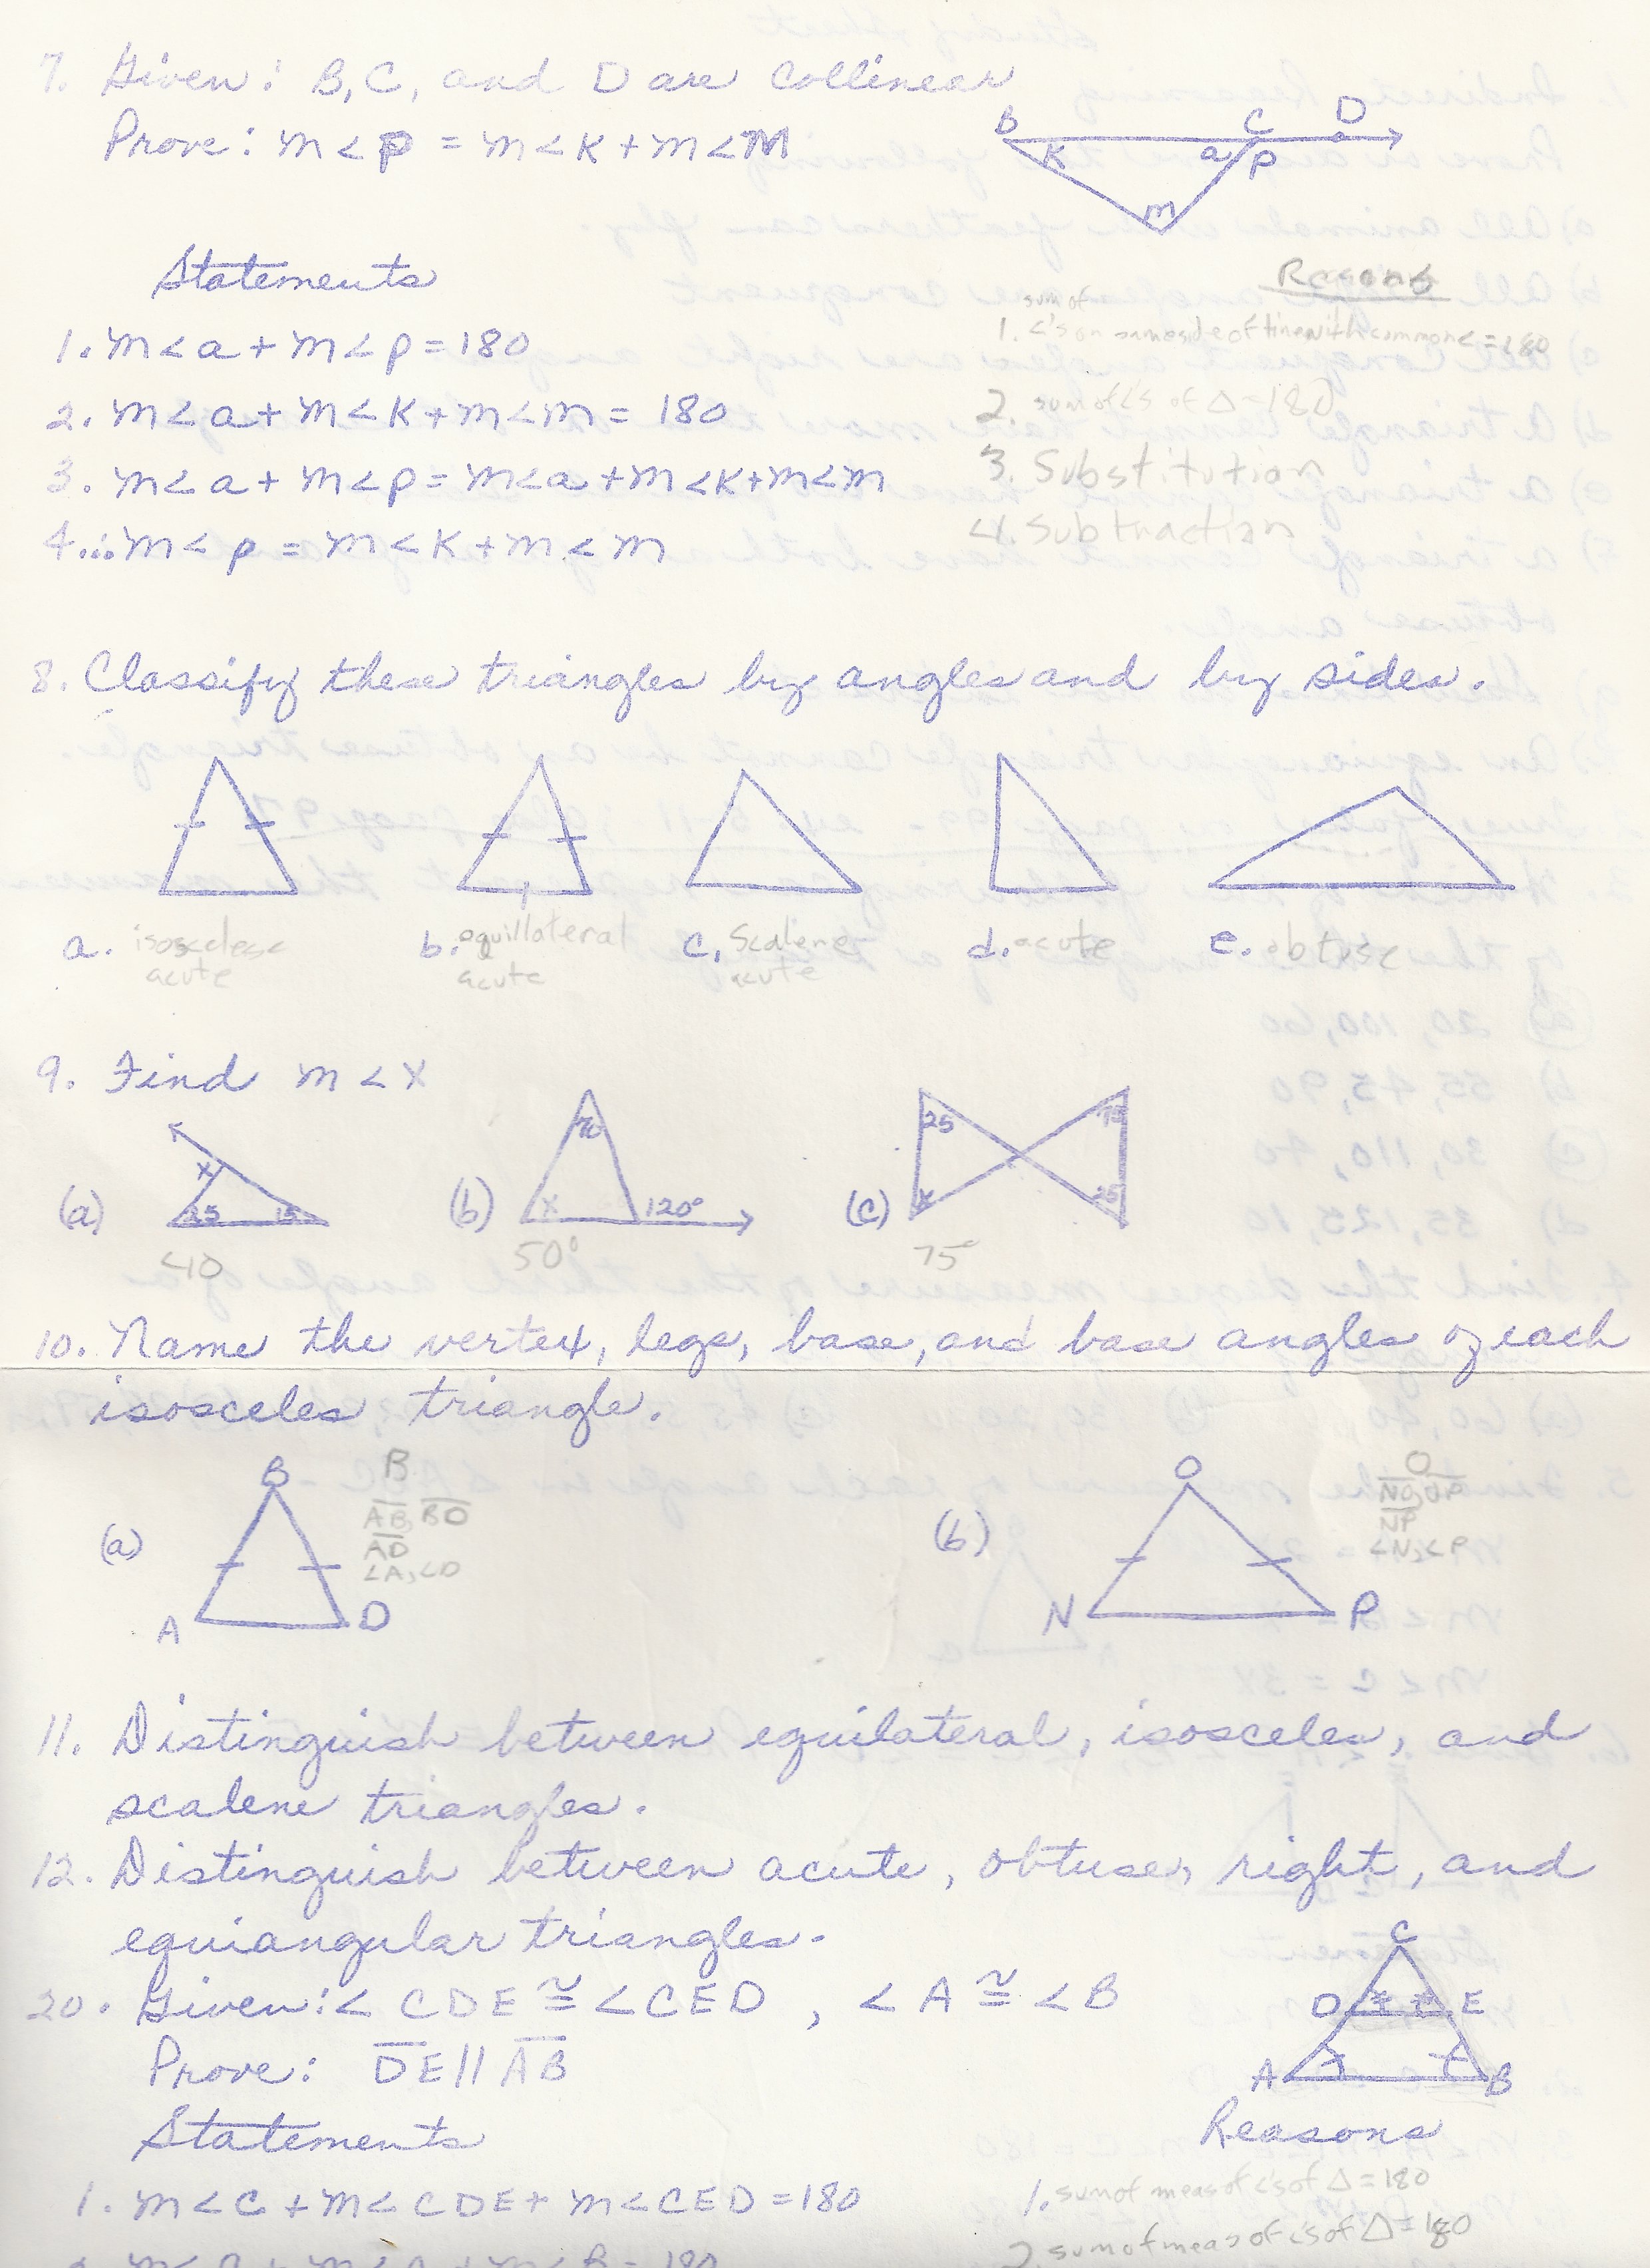 7. Given: B, C, and D are collinear
Prove: m<p = m<K + m<M
B C D
K a P
m
Statements
Reasons
1. m<a + m<p = 180
sum of
1. <'s on same side of line with common < = 180
2. m<a + m<K + m<m = 180
2. sum of <'s of △ = 180
3. m<a + m<p = m<a + m<K + m<m
3. Substitution
4. ∴ m<p = m<K + m<m
4. Subtraction
8. Classify these triangles by angles and by sides.
a. isoscelese
acute
b. equillateral
acute
c. Scalene
acute
d. acute
e. obtuse
9. Find m<x
(a) x 25 15
40
(b) 70 x 120°
50°
(c) 25 75 x 25
75°
10. Name the vertex, legs, base, and base angles of each
isosceles triangle.
(a) B A D
B
AB, BD
AD
<A, <D
(b) O N P
O
NO, OP
NP
<N, <P
11. Distinguish between equilateral, isosceles, and
scalene triangles.
12. Distinguish between acute, obtuse, right, and
equiangular triangles.
20. Given: < CDE ≅ < CED, < A ≅ < B
Prove: DE || AB
C
D E
A B
Statements
Reasons
1. m<C + m< CDE + m<CED = 180
1. sum of meas of <'s of △ = 180
2. sum of meas of <'s of △ = 180